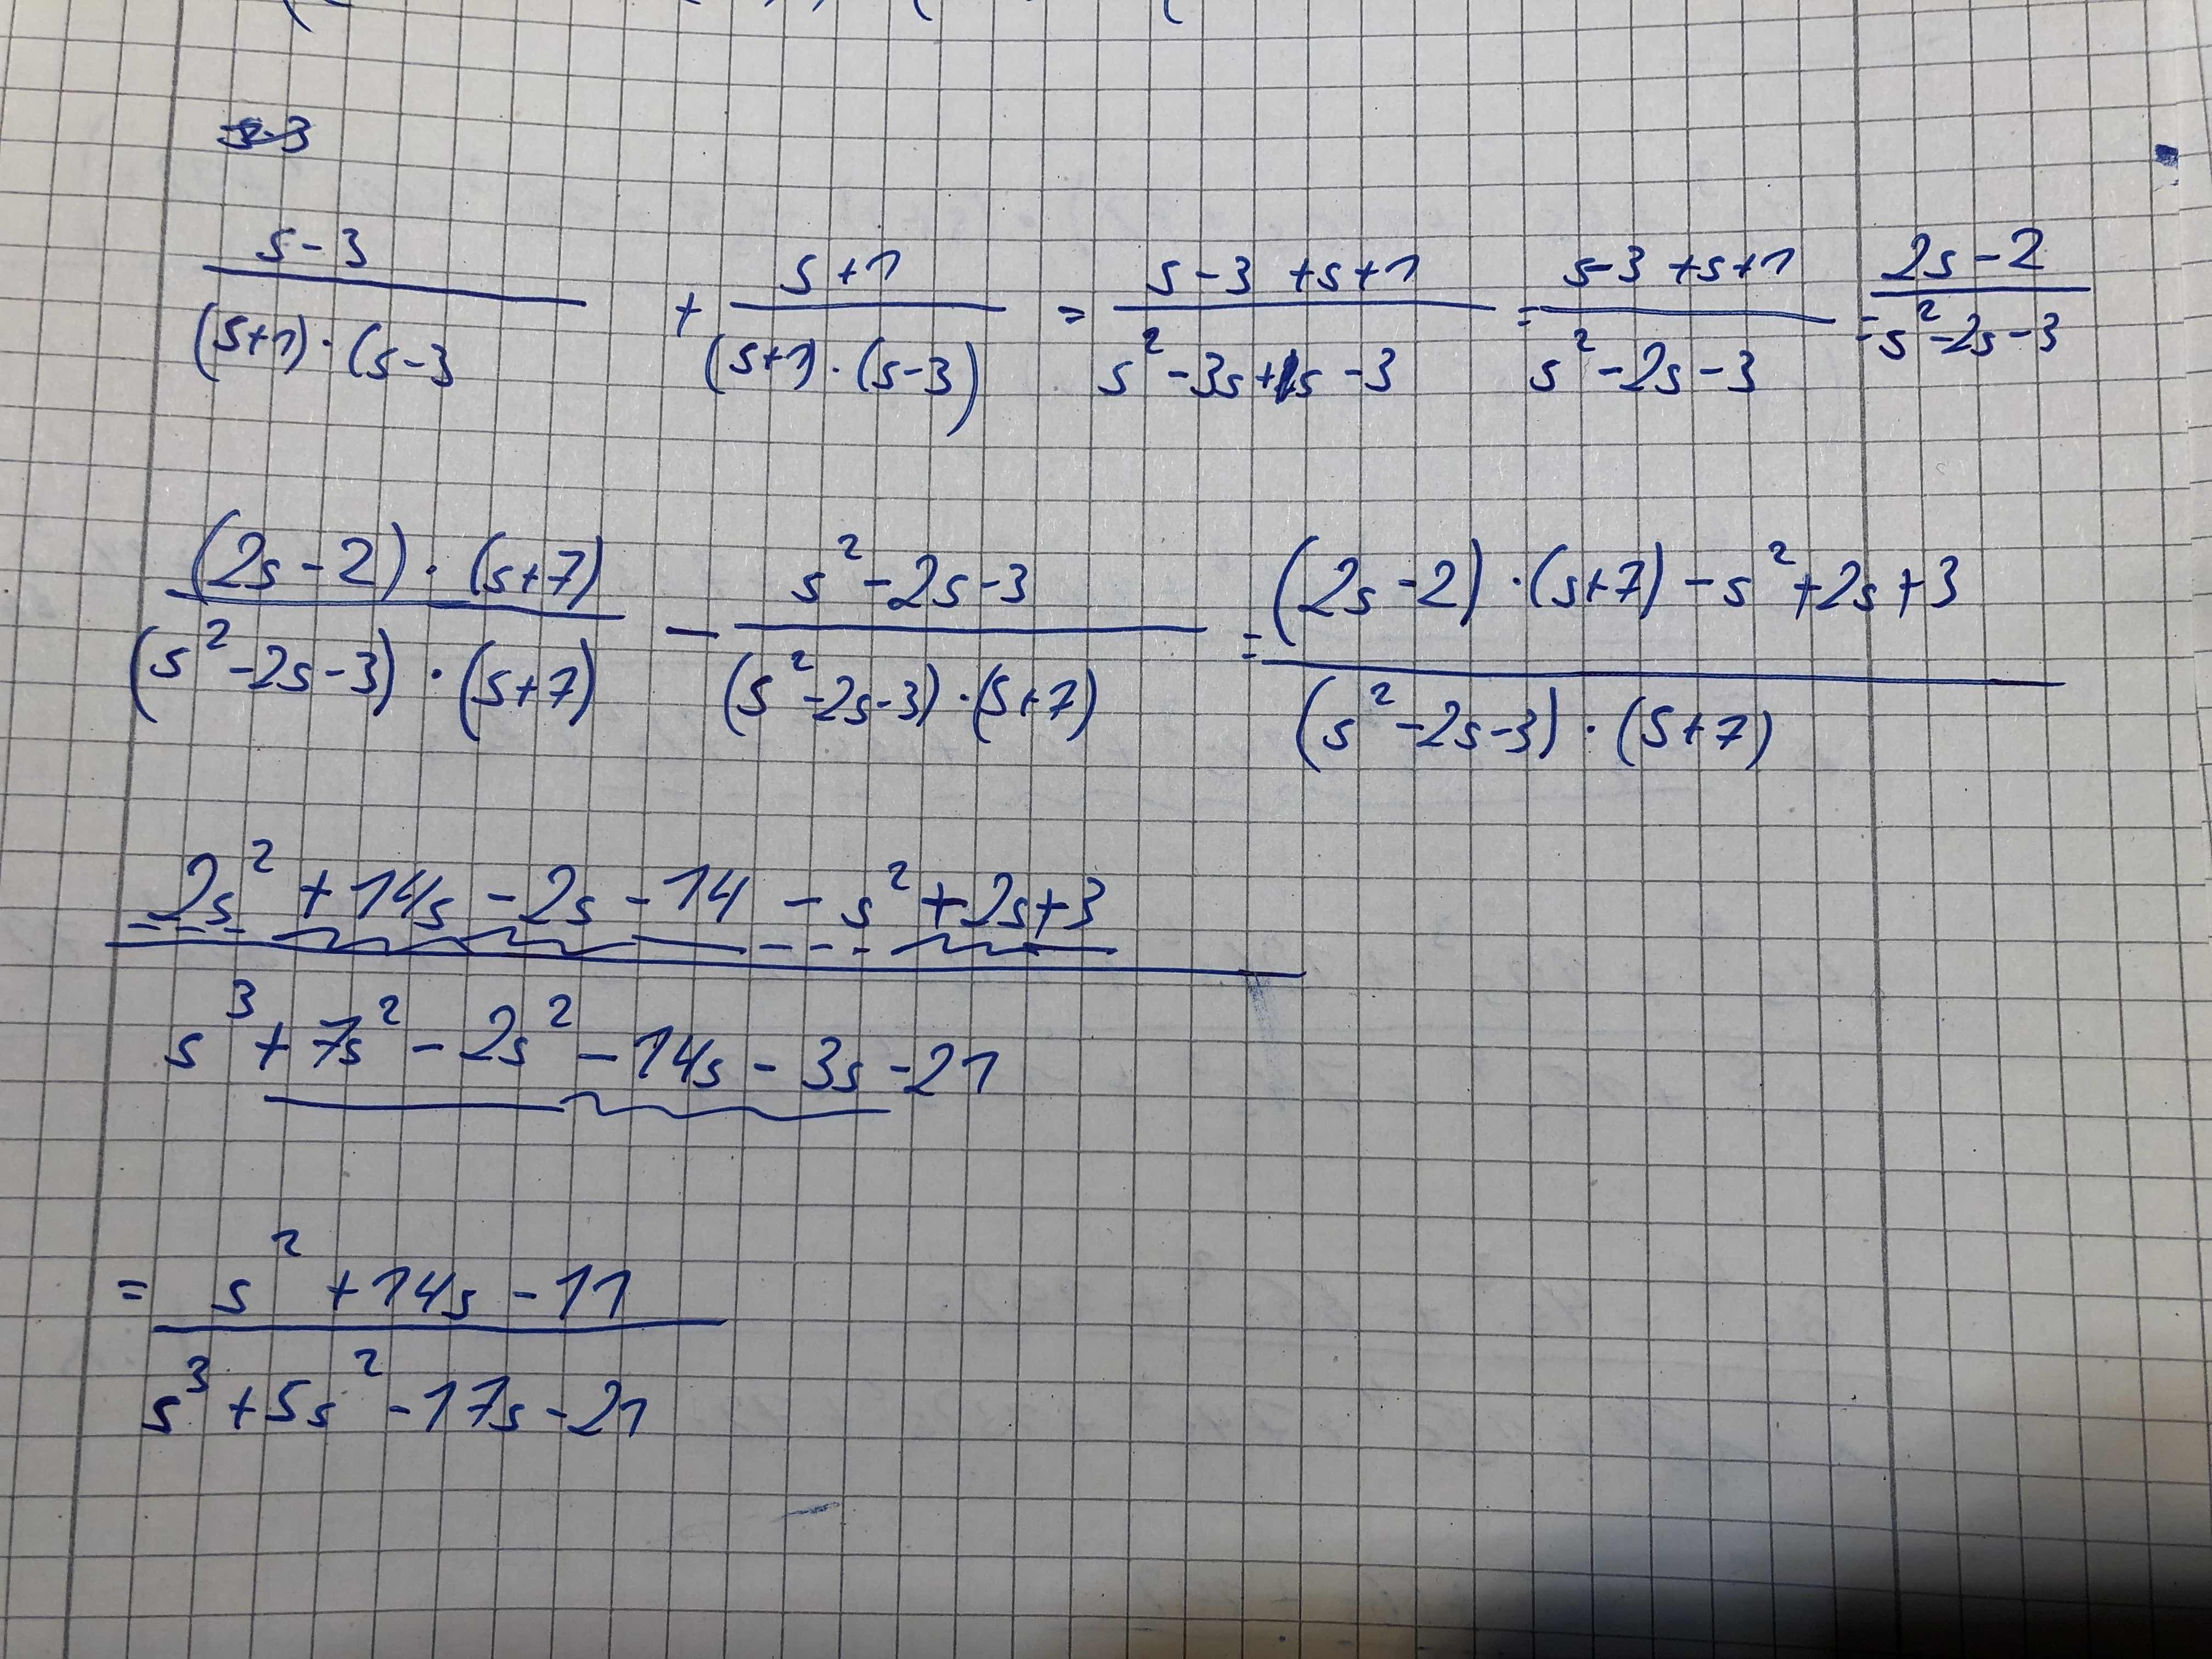 s-3 / (s+1)·(s-3 + s+1 / (s+1)·(s-3) = s-3 +s+1 / s²-3s+1s-3 = s-3+s+1 / s²-2s-3 = 2s-2 / s²-2s-3
(2s-2)·(s+7) / (s²-2s-3)·(s+7) - s²-2s-3 / (s²-2s-3)·(s+7) = (2s-2)·(s+7)-s²+2s+3 / (s²-2s-3)·(s+7)
2s²+14s-2s-14-s²+2s+3 / s³+7s²-2s²-14s-3s-21
= s²+14s-11 / s³+5s²-17s-21